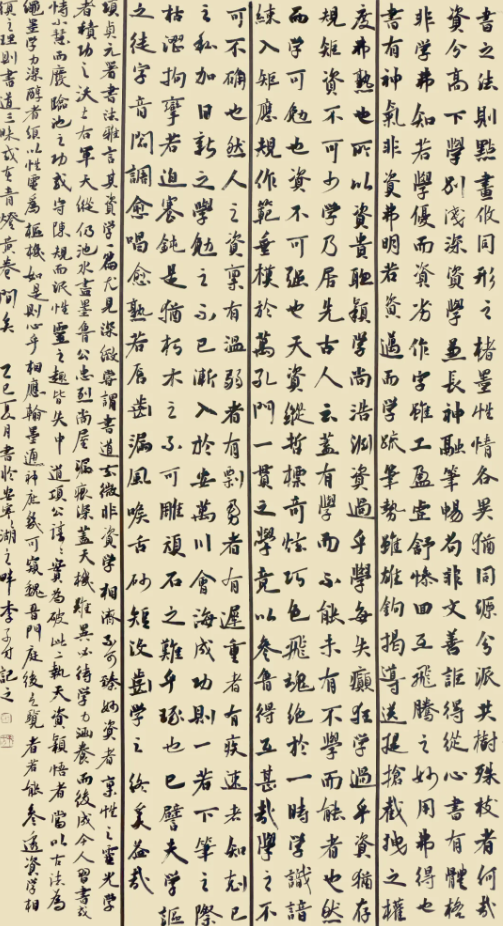 書之法則點畫攸同形之楮墨性情各異猶同源分派共樹殊枝者何哉
資分高下學別淺深資學兼長神融筆暢苟非文善詎得從心書有體格
非學弗知若學優而資劣作字雖工盈虛舒慘回互飛騰之妙用弗得也
書有神氣非資弗明若資邁而學疏筆勢雖雄鉤揭導送提搶截拽之權
度弗熟也所以資貴聰穎學尚浩淵資過乎學每失癲狂學過乎資猶存
規矩資不可少學乃居先古人云蓋有學而不能未有不學而能者也然
而學可勉也資不可強也天資縱哲標奇炫巧色飛魂絕於一時學識諳
練入矩應規作範垂模於萬孔門一貫之學竟以參魯得互甚哉學之不
可不確也然人之資稟有溫弱者有剽勇者有遲重者有疾速者知剋己
之私加日新之學勉之不已漸入於安萬川會海成功則一若下筆之際
枯澀拘攣若迫蹇鈍是猶朽木之不可雕頑石之難乎琢也已譬夫學謳
之徒字音闆調愈唱愈熟若唇齒漏風喉舌砂短沒齒學之終奚益哉
項貞元署書法雅言其資學一篇尤見深微嘗謂書道玄微非資學相濟不可臻妙資者稟性之靈光學
者積功之沃土右軍天縱仍池水盡墨魯公忠烈尚屋漏痕深蓋天機雖異必待學力涵養而後成今人習書或
恃小慧而廢臨池之功或守陳規而泯性靈之趣皆失中道項公諄諄實為破此二執天資穎悟者當以古法為
繩墨學力深醇者須以性靈為樞機如是則心手相應翰墨通神庶幾可窺魏晉門庭後之覽者若能參透資學相
須之理則書道三昧或在青燈黃卷間矣 乙巳夏月書於安寧湖之畔李子記之